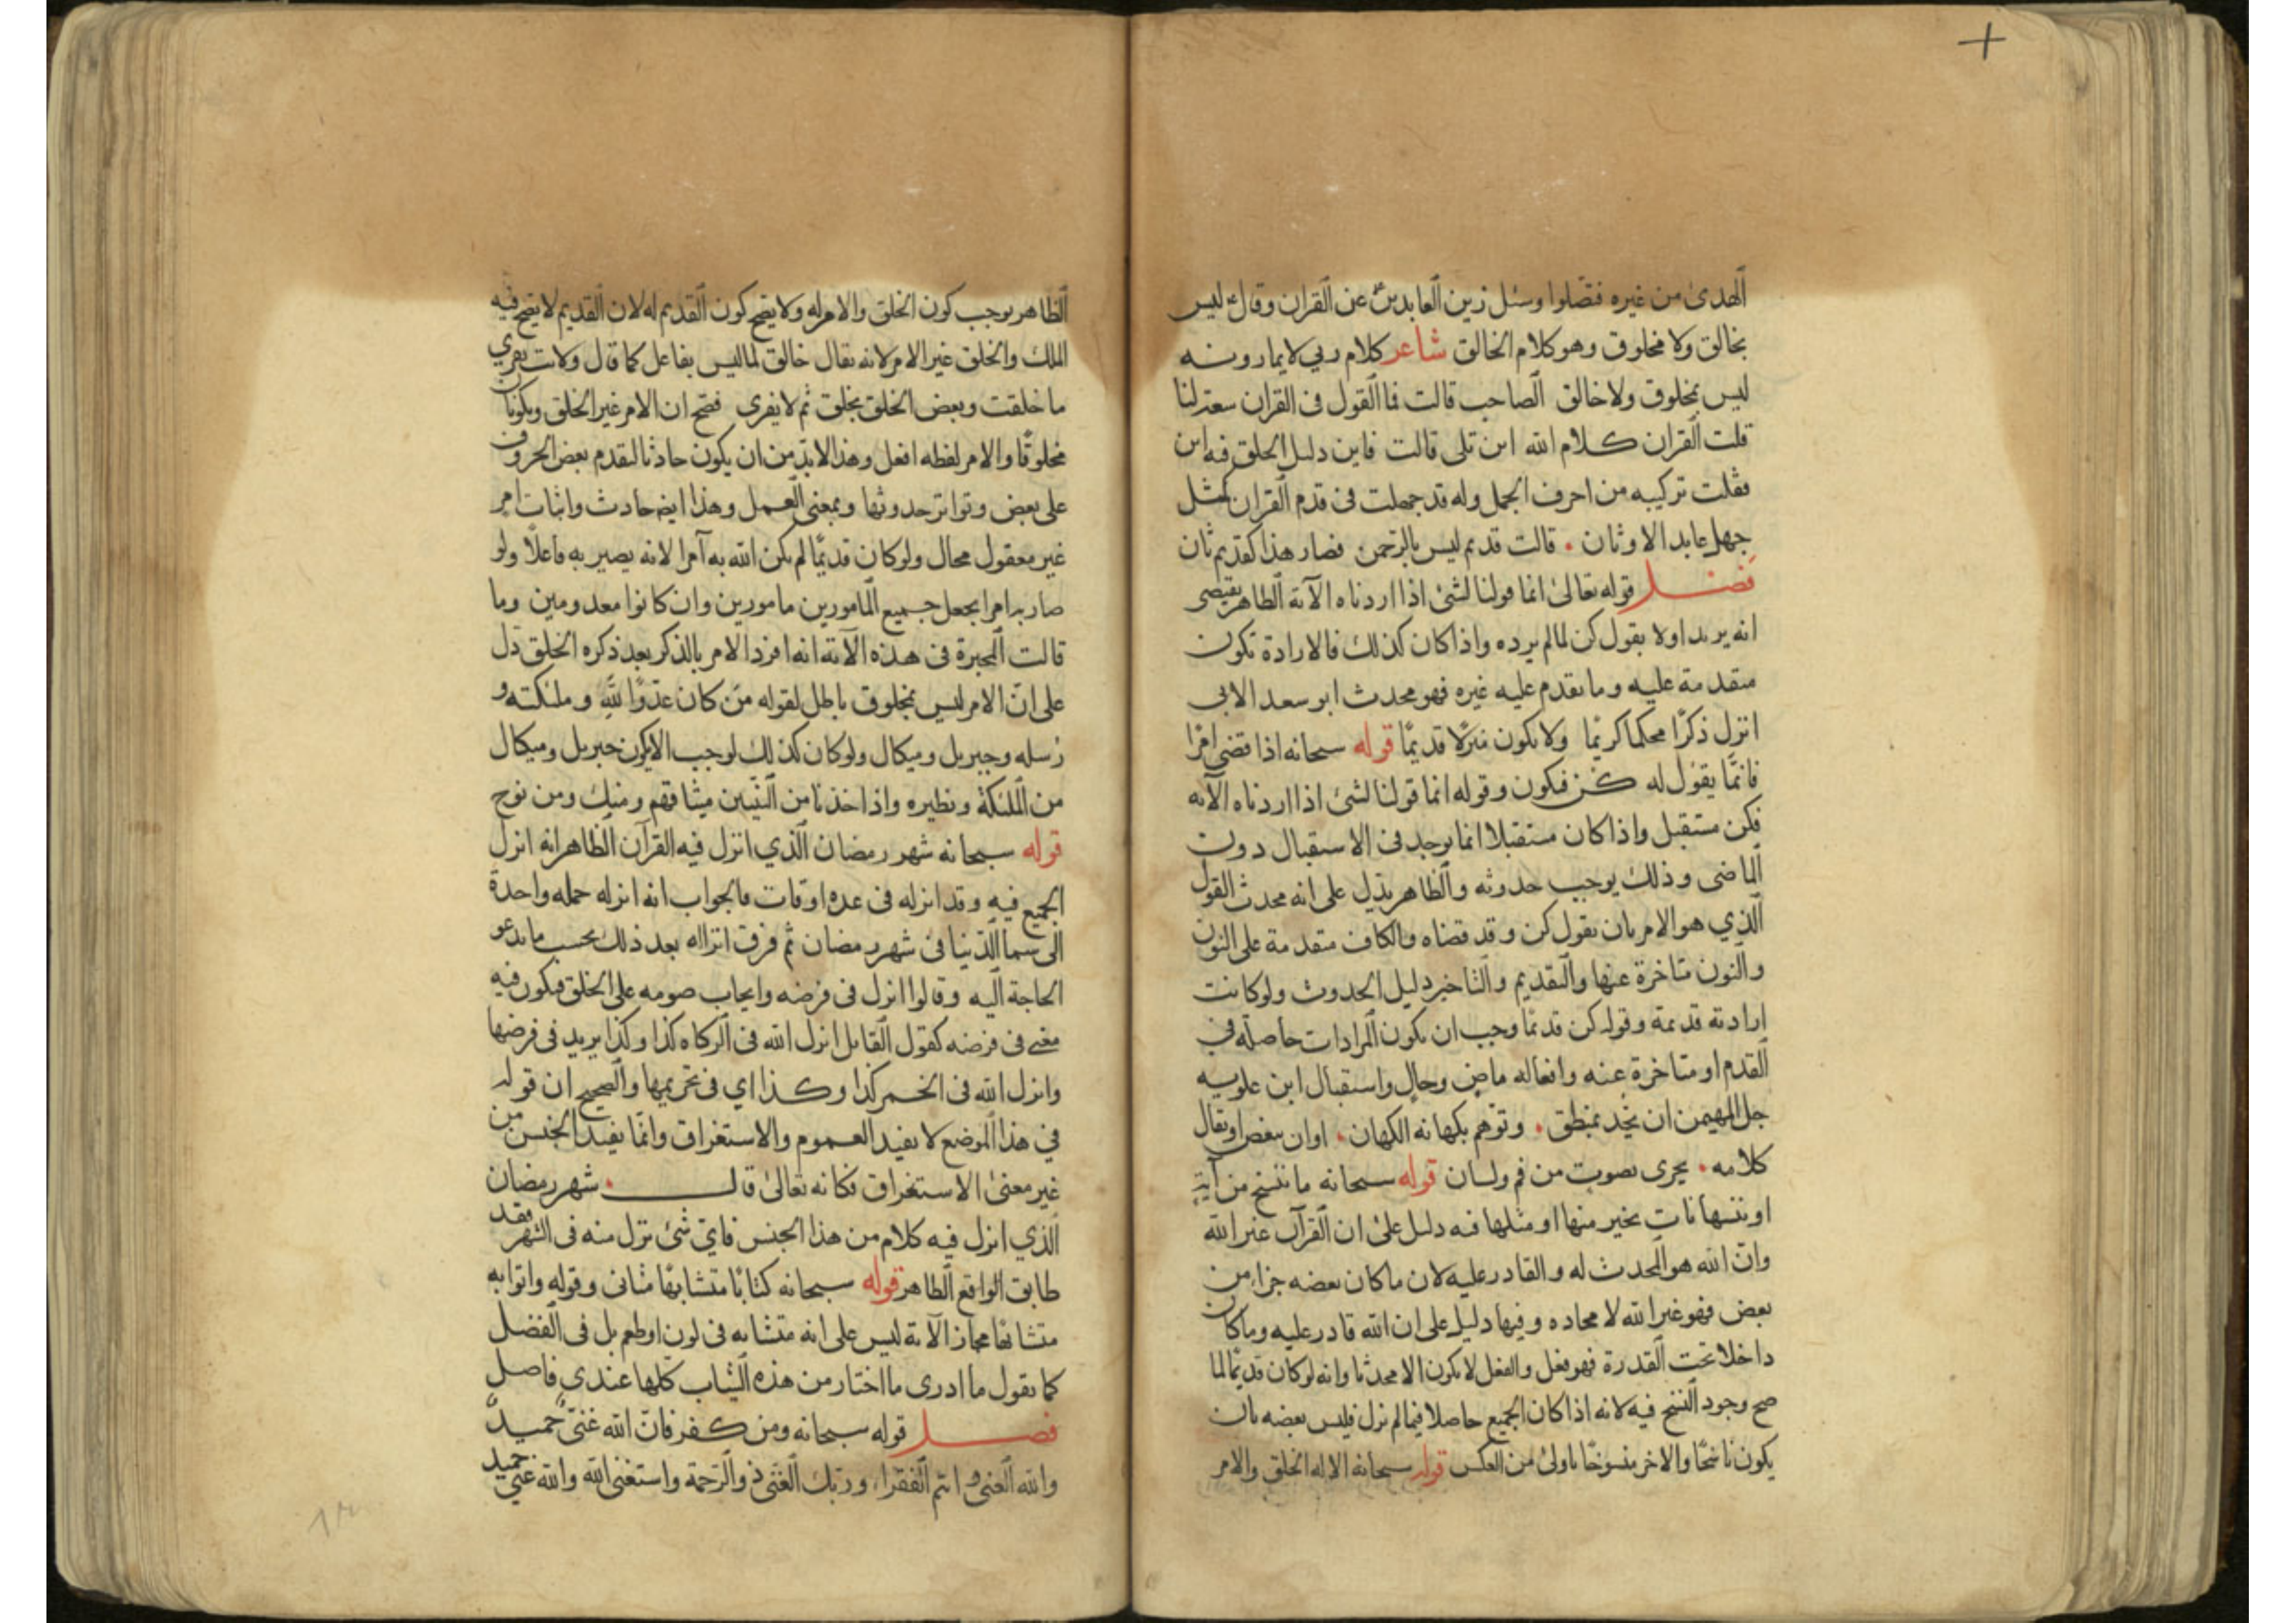 الهدى من غيره فتضلوا وسئل زين العابدين ع عن القران وقال ليس
بخالق ولا مخلوق وهو كلام الخالق شاعر كلام ربي لا يمارونه
ليس بمخلوق ولا خالق الصاحب قالت فما القول في القران لنا
قلت القران كلام الله اين تلى قالت فاين دليل الخلق فيه ابن
فقلت تركيبه من احرف الجمل وله قد جهلت في قدم القران كمثل
جهل عابد الاوثان قالت قديم ليس بالرحمن فصار هذا كقديم ثان
فصل قوله تعالى انما قولنا لشئ اذا اردناه الآية الظاهر يقتضى
انه يريد اولا بقول كن لما لم يرده واذا كان كذلك فالارادة تكون
متقدمة عليه وما تقدم عليه غيره فهو محدث ابو سعد الابى
انزل ذكرًا محكما كريما ولا يكون منزلا قديمًا قوله سبحانه اذا قضى امرًا
فانمّا يقول له كن فيكون وقوله انما قولنا لشئ اذا اردناه الآيه
فكن مستقبل واذا كان مستقبلا انما يوجد في الاستقبال دون
الماضى وذلك يوجب حدوثه والظاهر يدل على انه محدث القول
الذي هو الامر بان يقول كن وقد قضاه والكاف متقدمة على النون
والنون متاخرة عنها والتقديم والتاخير دليل الحدوث ولو كانت
ارادته قديمة وقوله كن قديمًا وجب ان يكون المرادات حاصلة في
القدم او متاخرة عنه وافعاله ماضٍ وحالٍ واستقبال ابن علويه
جل المهيمن ان يحد بمنطق وتوهم بكهانه الكهان او ان بعض او يقال
كلامه يجرى بصوت من فم ولسان قوله سبحانه ما ننسخ من آية
او ننسها نات بخير منها او مثلها فيه دليل على ان القرآن غير الله
وان الله هو المحدث له والقادر عليه لان ما كان بعضه خيرا من
بعض فهو غير الله لا محاده وفيها دليل على ان الله قادر عليه وما كان
داخلا تحت القدرة فهو فعل والفعل لا يكون الا محدثا وانه لو كان قديمًا لما
صح وجود النسخ فيه لانه اذا كان الجميع حاصلا فيما لم نزل فليس بعضه بان
يكون ناسخًا والاخر منسوخًا باولى من العكس قوله سبحانه الا له الخلق والامر
الظاهر يوجب كون الخلق والامر له ولا يصح كون القديم له لان القديم لا يصح فيه
الملك والخلق غير الامر لانه يقال خالق لما ليس بفاعل كما قال ولانت يفري
ما خلقت وبعض الخلق يخلق ثم لا يفرى فصح ان الامر غير الخلق ويكونان
مخلوقًا والامر لفظه افعل وهذا لابد من ان يكون حادثا لتقدم بعض الحروف
على بعض وتواتر حدوثها وبمعنى العمل وهذا ايضه حادث واثبات امر
غير معقول محال ولو كان قديمًا لم يكن الله به آمرا لانه يصير به فاعلًا ولو
صار به امرا بجعل جميع المامورين مامورين وان كانوا معدومين وما
قالت المجبرة في هذه الآية انه افرد الامر بالذكر بعد ذكره الخلق دل
على ان الامر ليس بمخلوق باطل لقوله من كان عدوًا لله وملئكته و
رسله وجبريل وميكال ولو كان كذلك لوجب الا يكون جبريل وميكال
من الملئكة ونظيره واذ اخذنا من النبيين ميثاقهم ومنك ومن نوح
قوله سبحانه شهر رمضان الذي انزل فيه القرآن الظاهر انه انزل
الجميع فيه وقد انزله في عده اوقات فالجواب انه انزله جمله واحدة
الى سما الدنيا فى شهر رمضان ثم فرق انزاله بعد ذلك بحسب ما يدعو
الحاجة اليه وقالوا انزل في فرضه وايجاب صومه على الخلق فيكون فيه
معنى في فرضه كقول القايل انزل الله في الزكاه كذا وكذا يريد في فرضها
وانزل الله في الخمر كذا وكذا اي في تحريمها والصحيح ان قوله
في هذا الموضع لا يفيد العموم والاستغراق وانما يفيد الجنس من
غير معنى الاستغراق فكانه تعالى قال شهر رمضان
الذي انزل فيه كلام من هذا الجنس فاي شئ نزل منه في الشهر فقد
طابق الواقع الظاهر قوله سبحانه كتابًا متشابهًا مثانى وقوله واتوا به
متشابهًا مجاز الآية ليس على انه متشابه في لون او طعم بل في الفضل
كما يقول ما ادرى ما اختار من هذه الثياب كلها عندي فاضل
فصل قوله سبحانه ومن كفر فان الله غني حميد
والله الغنى وانتم الفقرا وربك الغنى ذو الرحمة واستغنى الله والله غني حميد